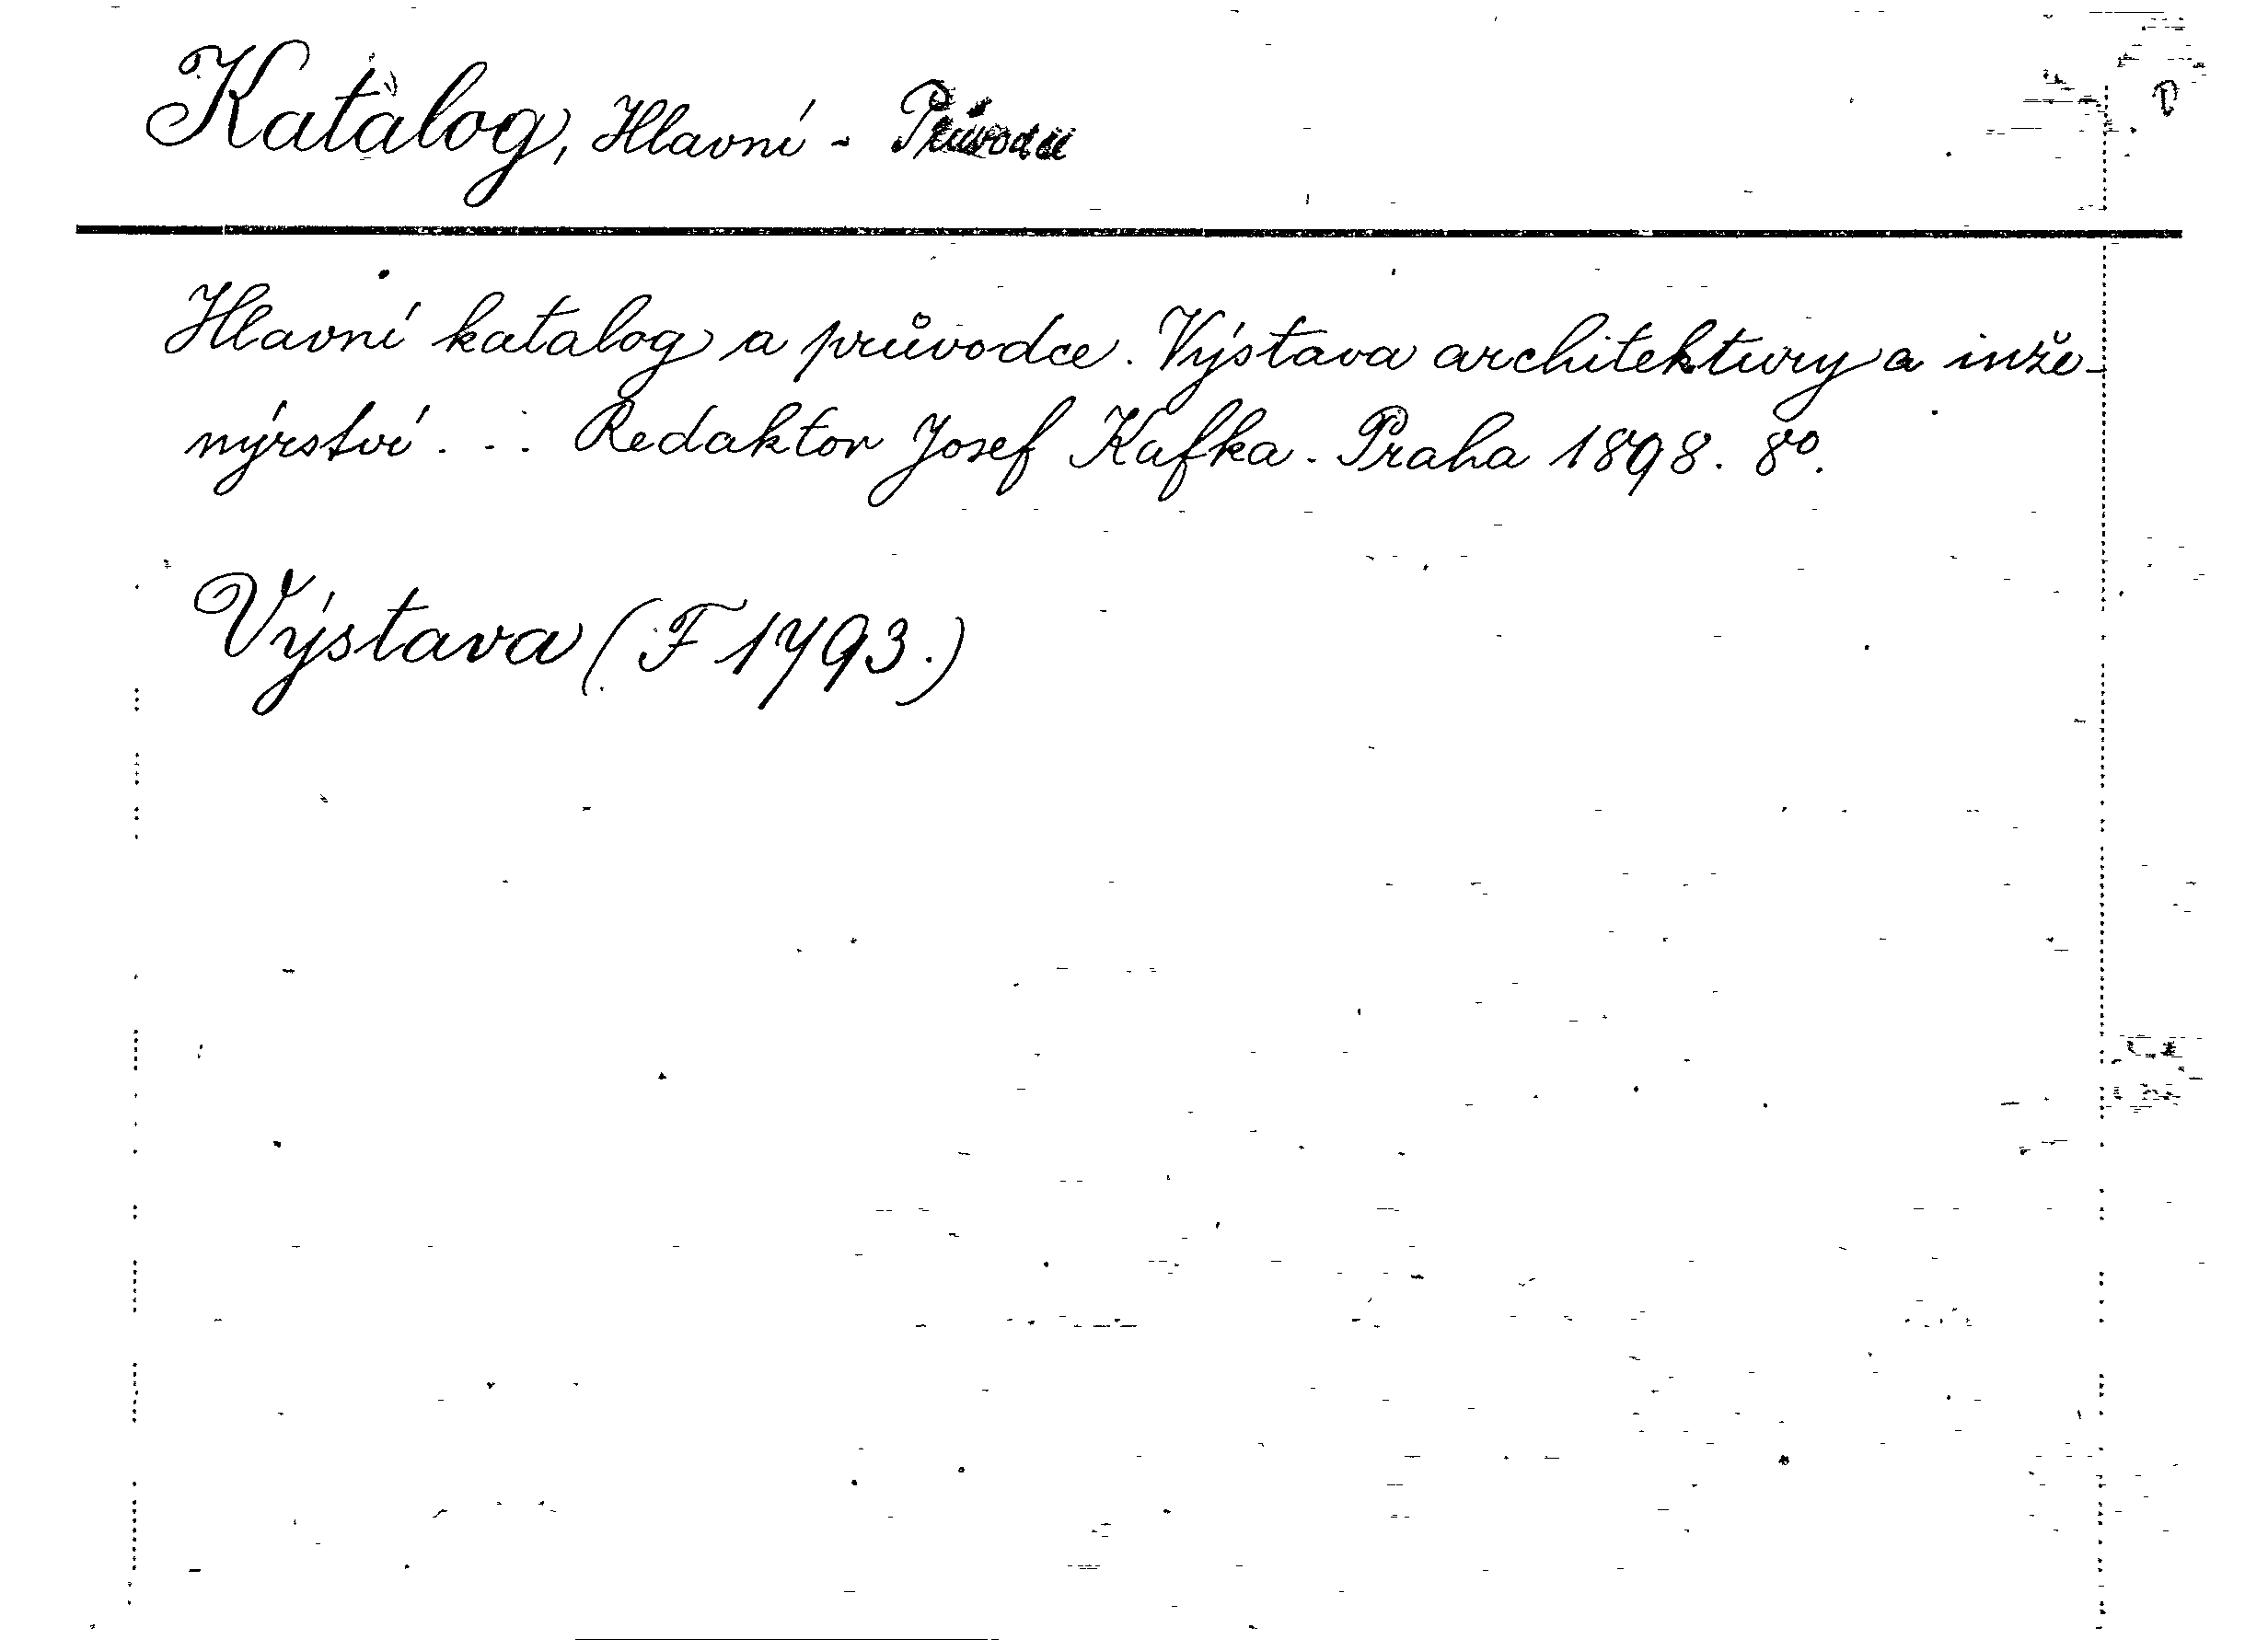 Katalog, Hlavní -
Hlavní katalog a průvodce. Výstava architektury a inže-
nýrství... Redaktor Josef Kafka. Praha 1898. 8º.
Výstava (F 1793.)